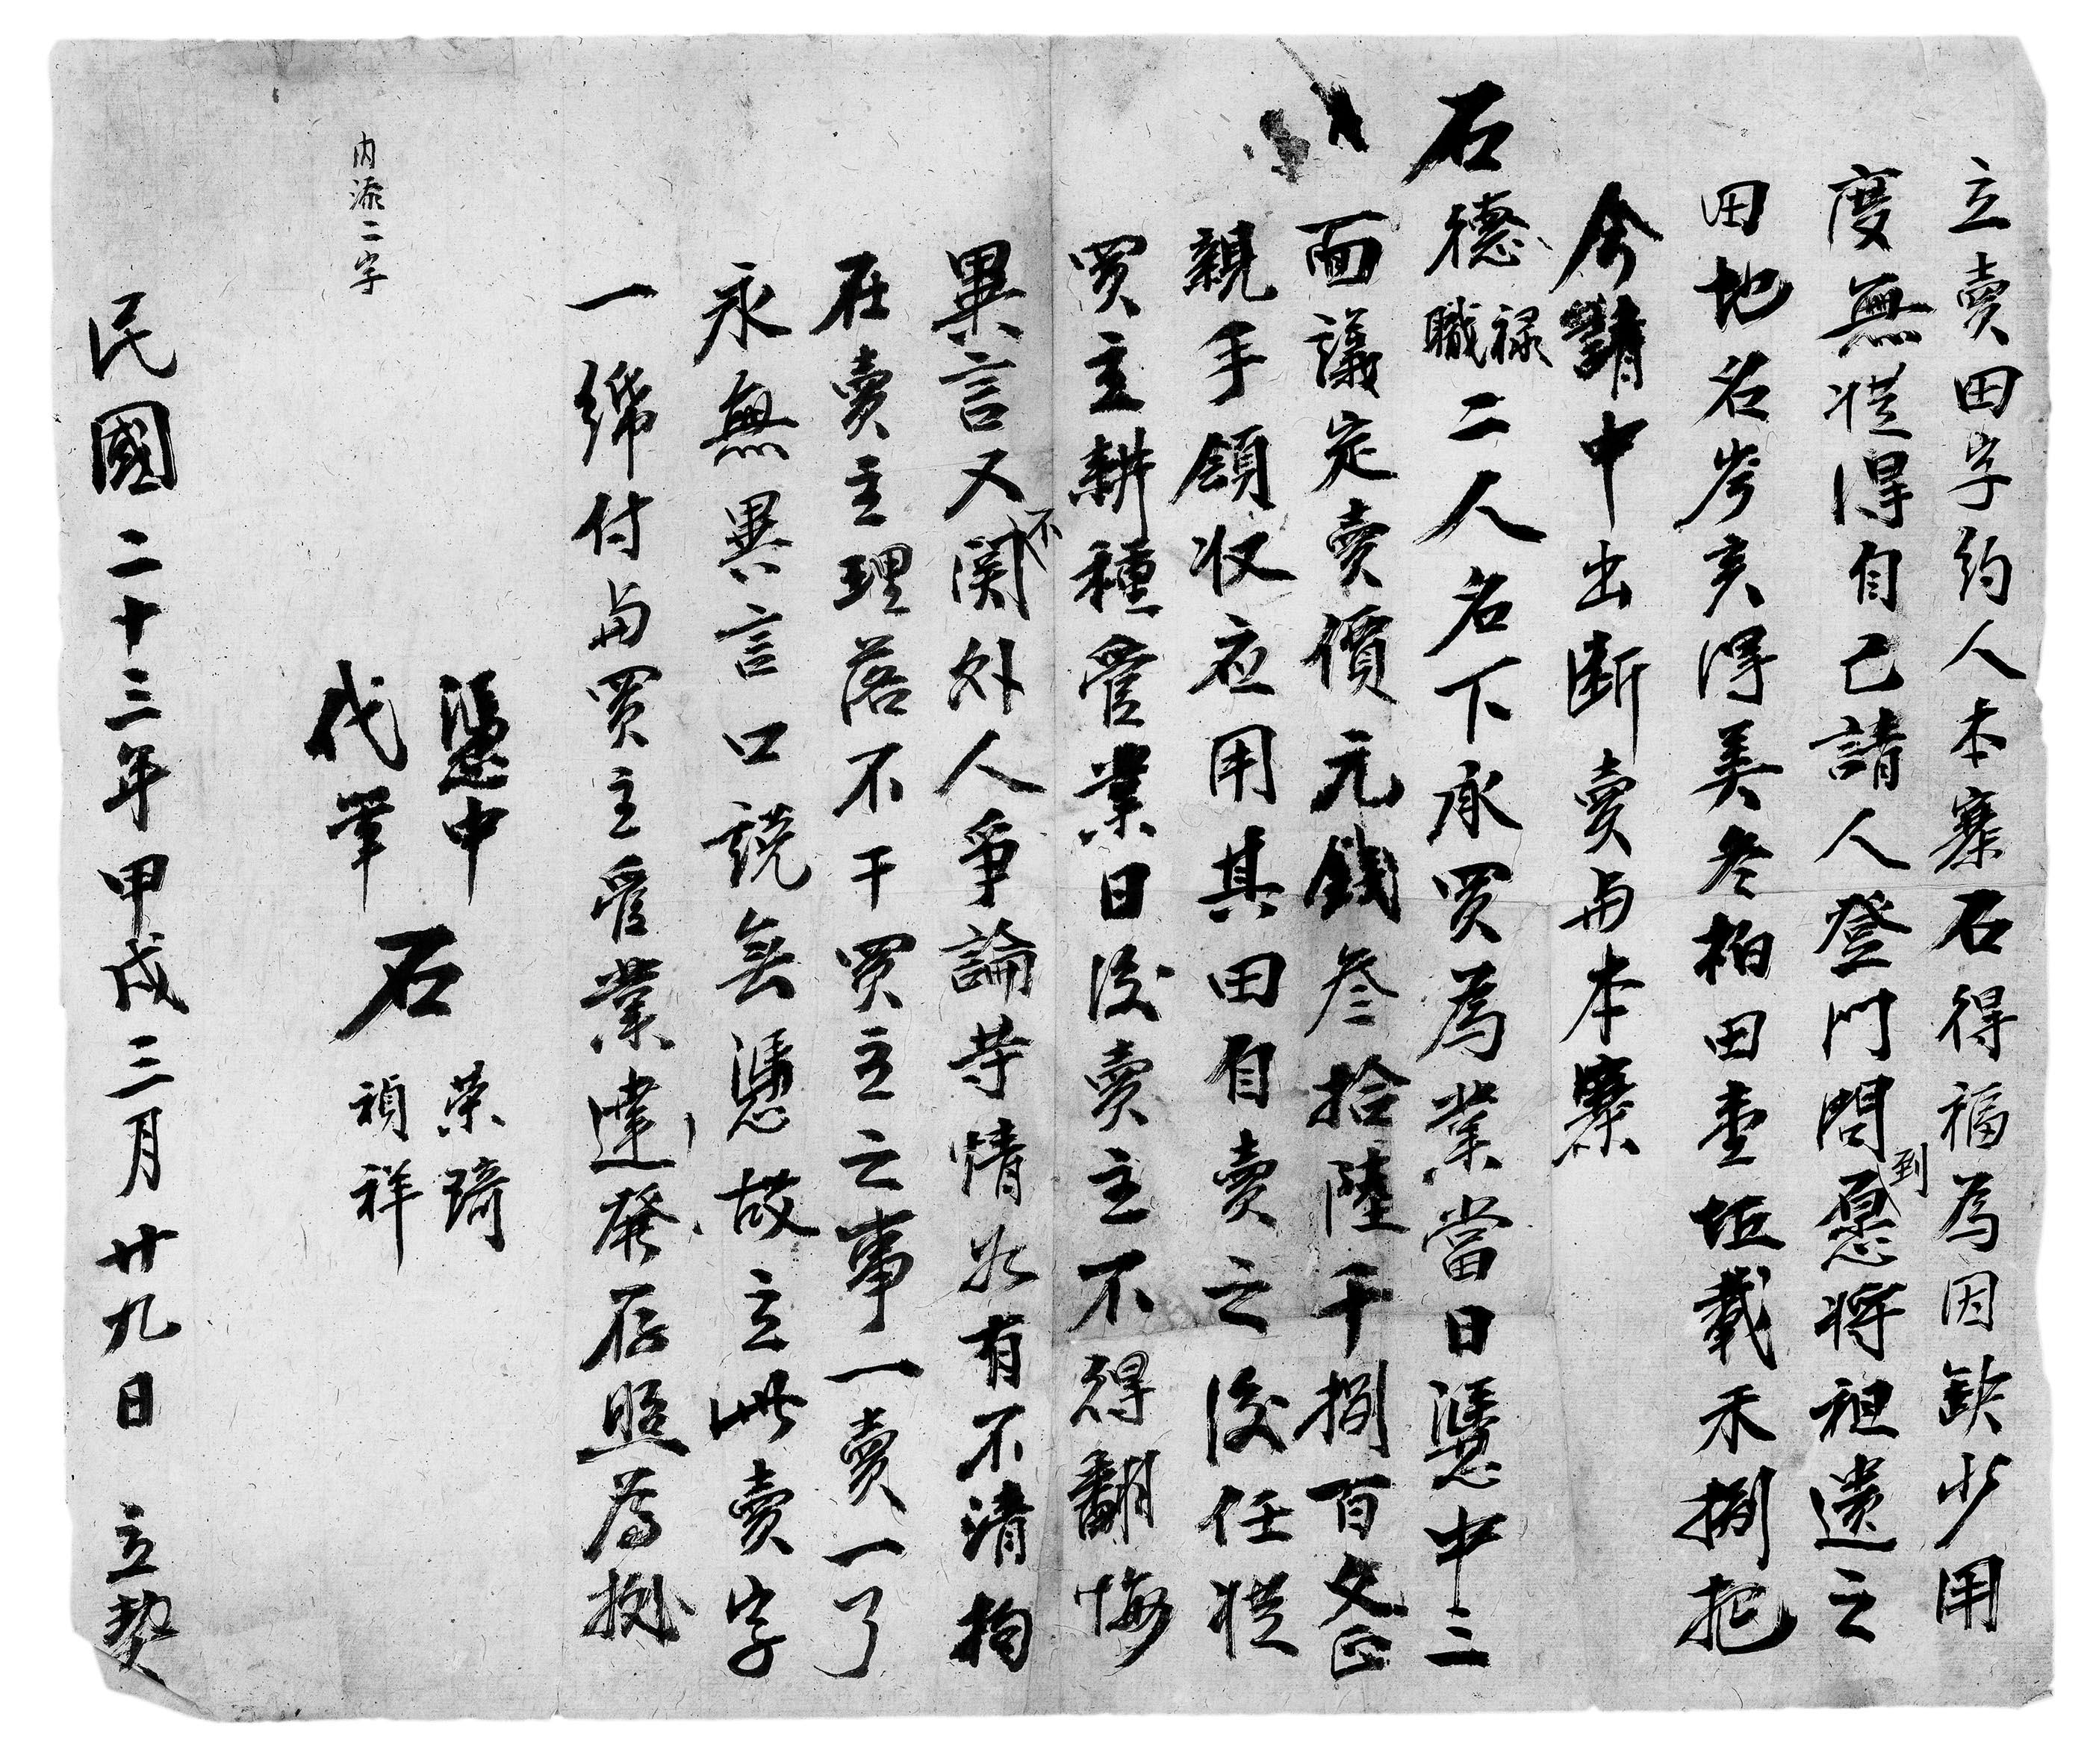 立賣田字約人本寨石得福為因缺少用
度無從得自己請人登門問到愿將祖遗之
田地名岑亥得美冬柏田壹坵載禾捌把
今請中出断賣与本寨
石德禄職二人名下承買為業當日憑中三
面議定賣價元錢叄拾陸千捌百文正
親手領収应用其田自賣之後任從
買主耕種管業日後賣主不得翻悔
異言又不関外人爭論䓁情如有不清拘
在賣主理落不干買主之事一賣一了
永無異言口説無憑故立此賣字
一紙付与買主管業違發存照為拠
憑中 石 荣琦
代筆 禎祥
内添二字
民國二十三年甲戌三月廿九日 立契